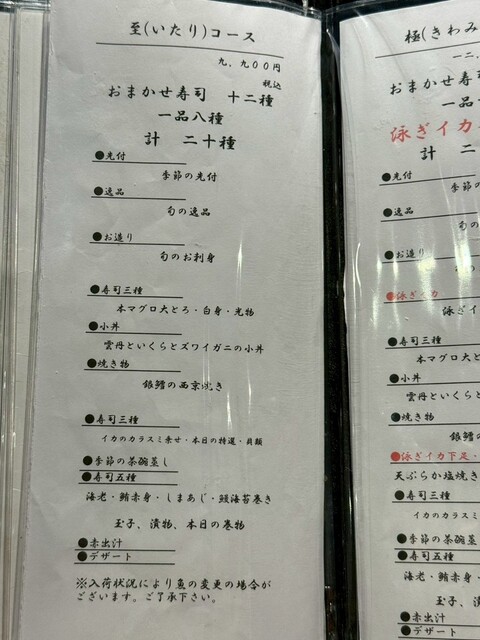 至(いたり)コース
九,九00円
税込
おまかせ寿司 十二種
一品八種
計 二十種
●先付
季節の先付
●逸品
旬の逸品
●お造り
旬のお刺身
●寿司三種
本マグロ大とろ・白身・光物
●小丼
雲丹といくらとズワイガニの小丼
●焼き物
銀鱈の西京焼き
●寿司三種
イカのカラスミ乗せ・本日の特選・貝類
●季節の茶碗蒸し
●寿司五種
海老・鮪赤身・しまあじ・鰻海苔巻き
玉子、漬物、本日の巻物
●赤出汁
●デザート
※入荷状況により魚の変更の場合が
ございます。ご了承下さい。
極(きわみ
一二,
おまかせ寿司
一品
泳ぎイカ
計 二
●先付
季節の
●逸品
●お造り
●泳ぎイカ
泳ぎイ
●寿司三種
本マグロ大
●小丼
雲丹といくら
●焼き物
銀鱈の
●泳ぎイカ下足・
天ぷらか塩焼き
●寿司三種
イカのカラスミ
●季節の茶碗蒸
●寿司五種
海老・鮪赤身・
玉子、漬
●赤出汁
●デザート